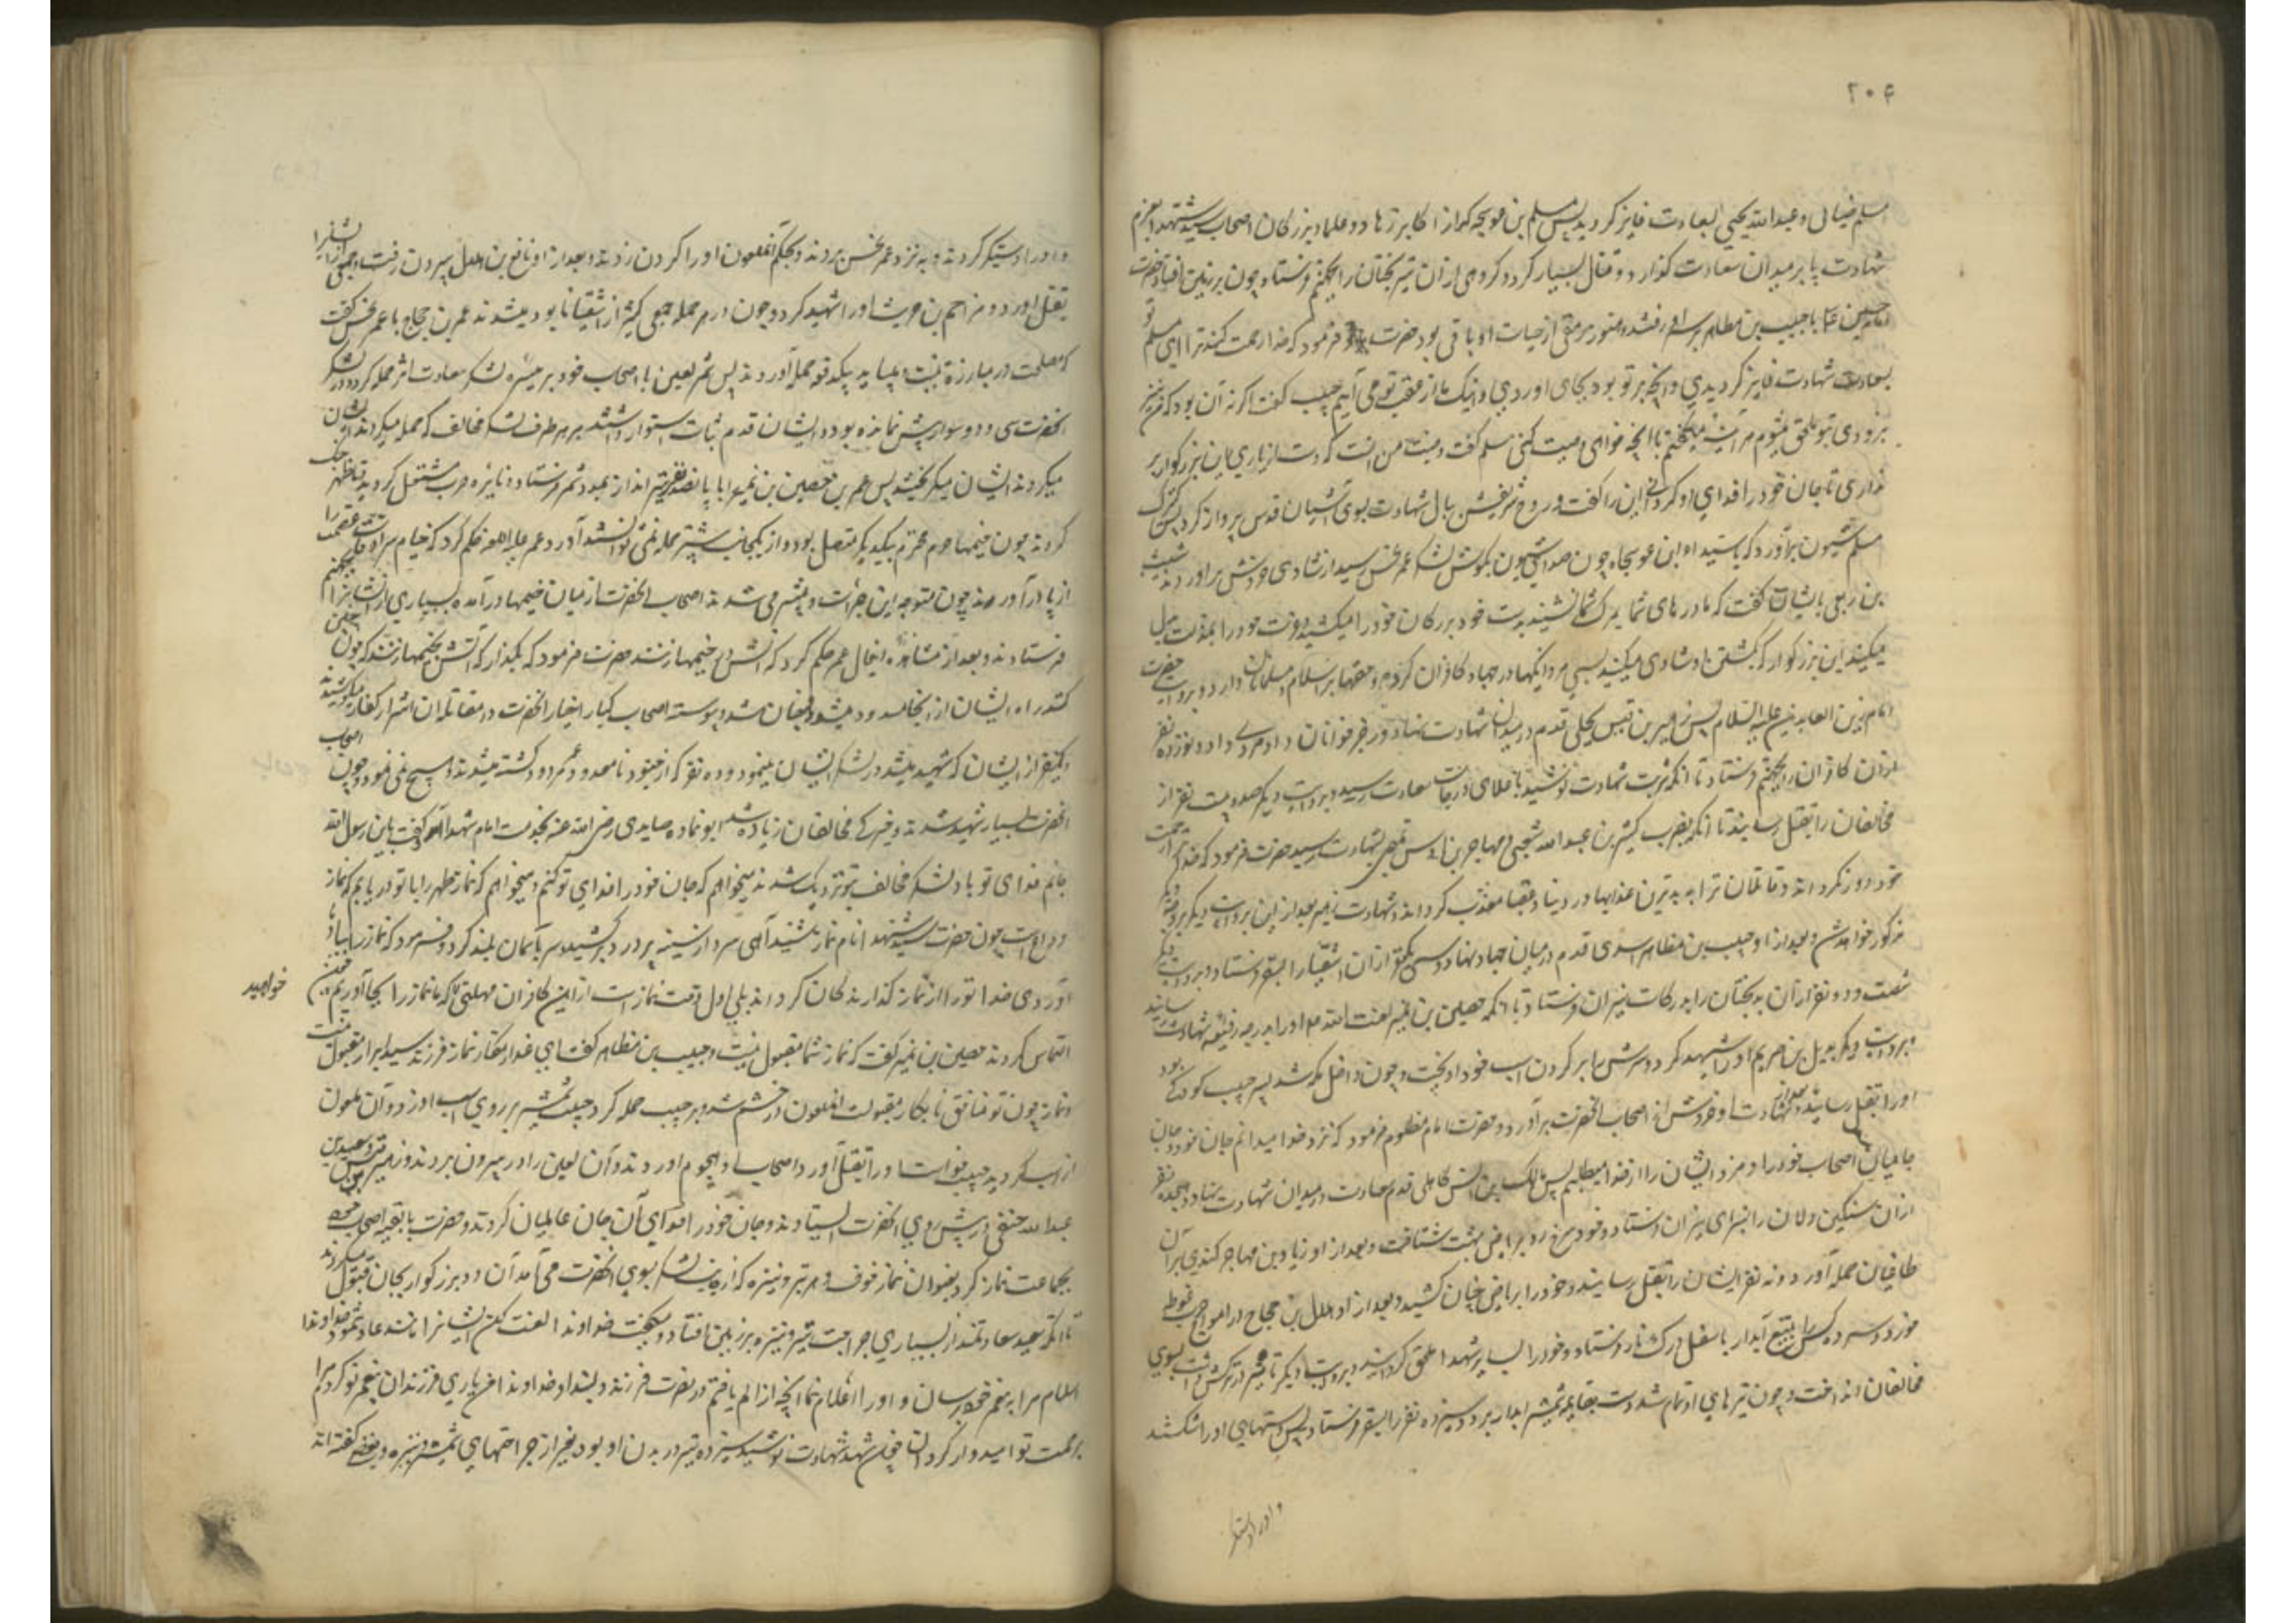 ۲۰۶
مسلم ضبابی و عبدالله بجلی بسعادت فایز کردید پس مسلم بن عوسجه که از اکابر زهاد و علما و بزرکان اصحاب سید شهدا بعزم
شهادت پا بر میدان سعادت کذارد و قتال بسیار کرد و کروهی از آن تیره بختان را بجهنم فرستاد و چون بر زمین افتاد حضرت
امام حسین ع با حبیب بن مظاهر بر سر او رفتند و هنوز رمقی از حیات او باقی بود حضرت فرمود که خدا رحمت کند ترا ای مسلم تو
بسعادت شهادت فایز کردیدی و آنچه بر تو بود بجای اوردی و اینک ما از عقب تو می آییم حبیب کفت اکر نه آن بود که من نیز
بزودی بتو ملحق میشوم هر آینه میکفتم تا آنچه خواهی وصیت کنی مسلم کفت وصیت من انست که دست از یاری این بزرکوار بر
نداری تا جان خود را فدای او کردانی این را کفت و روح شریفش ببال شهادت بسوی آشیان قدس پرواز کرد پس کنیزک
مسلم شیون برآورد که یا سیداه و ابن عوسجاه چون صدای شیون بکوش لشکر عمر نحس رسید از شادی خروش براوردند شبث
بن ربعی بایشان کفت که مادرهای شما بمرک شما نشینند بدست خود بزرکان خود را میکشید و عزت خود را بمذلت مبدل
میکنید این بزرکوار که بکشتن او شادی میکنید بسی مردانکیها در جهاد کافران کرده و حقها بر اسلام و مسلمانان دارد و بروایت حضرت
امام زین العابدین علیه السلام پس زهیر بن قیس بجلی قدم در میدان شهادت نهاد و رجزخوانان داد مردی داد و نوزده نفر
از آن کافران را بجهنم فرستاد تا آنکه شربت شهادت نوشید باعلای درجات سعادت رسید و بروایت دیکر صد و بیست نفر از
مخالفان را بقتل رسانید تا آنکه بضرب کثیر بن عبدالله شعبی و مهاجر بن اوس تمیمی بشهادت رسید حضرت فرمود که خدا ترا از رحمت
خود دور نکرداند و قاتلان ترا به بدترین عذابها در دنیا و عقبا معذب کرداند و شهادت زهیر بعد از این بروایت دیکر بروجه دیکر
مذکور خواهد شد و بعد از او حبیب بن مظاهر اسدی قدم در میدان جهاد نهاد و سی و یکنفر از آن اشقیا را بسقر فرستاد و بروایت دیکر
شصت و دو نفر از آن بدبختان را بدرکات نیران فرستاد تا آنکه حصین بن نمیر لعنت الله علیه او را بدرجه رفیعه شهادت رسانید
و بروایت دیکر بدیل بن صریم او را شهید کرد و سرش را بر کردن اسب خود آویخت و چون داخل مکه شد پسر حبیب کودکی بود
او را بقتل رسانید و شهادت او خروش از اصحاب آنحضرت برآورد و حضرت امام مظلوم فرمود که نزد خدا میدانم جان خود و جان
حامیان اصحاب خود را و مزد ایشان را از خدا میطلبم پس مالک بن انس کاهلی قدم سعادت در میدان شهادت نهاد و هجده نفر
از آن سنکین دلان را بسرای نیران فرستاد و خود سرخ رو بریاض بهشت شتافت و بعد از او زیاد بن مهاجر کندی بر آن
طاغیان حمله آورد و نه نفر ایشان را بقتل رسانید و خود را بریاض جنان کشید و بعد از او هلال بن حجاج در امواج حرب غوطه
خورد و سیزده کس را بتیغ آبدار باسفل درک نار فرستاد و خود را بسایر شهدا ملحق کردانید و بروایت دیکر تا تیر در ترکش داشت بسوی
مخالفان انداخت و چون تیرهای او تمام شد دست بقایمه شمشیر آبدار برد و سیزده نفر را بسقر فرستاد پس دستهای او را شکستند
و او را دستکیر
و او را دستکیر کردند و به نزد عمر نحس بردند و بحکم آنملعون او را کردن زدند و بعد از او نافع بن هلال بیرون رفت و جمعی از ایشانرا
بقتل اورد و مزاحم بن حریث او را شهید کرد و چون در هر حمله جمعی کثیر از اشقیا نابود میشدند عمر بن حجاج با عمر نحس کفت
که مصلحت در مبارزت نیست و میباید بیکدفعه حمله آوردند پس شمر لعین با اصحاب خود بر میسره لشکر سعادت اثر حمله کرد و در لشکر
آنحضرت سی و دو سوار بیش نمانده بود و ایشان قدم ثبات استوار داشتند بر هر طرف لشکر مخالف که حمله میکردند ایشان
میکردند ایشان میکریختند پس عمر بن حصین بن نمیر را با پانصد نفر تیرانداز بمدد شمر فرستاد و نایره حرب مشتعل کردید تا ظهر جنک
کردند چون خیمهای حرم محترم بیکدیکر متصل بود و از یکجانب بیشتر حمله نمی توانستند آورد عمر علیه اللعنه حکم کرد که خیام سرادقات عصمت را
از پا درآورند چون متوجه این جرأت و بیشرمی شدند اصحاب آنحضرت از میان خیمها درآمده بسیاری از ایشانرا بجهنم
فرستادند و بعد از مشاهده اینحال عمر حکم کرد که آتش در خیمها زنند حضرت فرمود که بکذار که آتش بخیمها زنند که چون چنین
کنند راه ایشان از اینجا مسدود میشود و چنان شد و پیوسته اصحاب کبار اخیار آنحضرت در مقاتله آن اشرار کفار میکوشیدند
و یکنفر از ایشان که شهید میشد در لشکر ایشان مینمود و ده نفر که از جنود نامعدود عمر مردود کشته میشدند هیچ نمی نمود و چون اصحاب
آنحضرت بسیار شهید شدند و خیرکی مخالفان زیاده شد ابوثمامه صایدی رضی الله عنه بخدمت امام شهدا آمد و کفت یابن رسول الله
جانم فدای تو باد لشکر مخالف بتو نزدیک شدند میخواهم که جان خود را فدای تو کنم و میخواهم که نماز ظهر را با تو دریابم که نماز
وداع است چون حضرت سید شهدا نام نماز بشنید آهی سرد از سینه پردرد برکشید و سر بآسمان بلند کرد و فرمود که نماز را بیاد
آوردی خدا تورا از نماز کذارندکان کرداند بلی اول وقت نماز است از این کافران مهلتی که ما نماز را بجا آوریم چون
خواهید
التماس کردند حصین بن نمیر کفت که نماز شما مقبول نیست و حبیب بن مظاهر کفت ای غدار مکار نماز فرزند سید ابرار مقبول نیست
و نماز چون تو منافق نابکار مقبولست آنملعون در خشم شد و بر حبیب حمله کرد حبیب شمشیر بر روی اسب او زد و آن ملعون
از اسب کردید حبیب خواست او را بقتل آورد اصحاب او هجوم اوردند و آن لعین را در بیرون بردند و زهیر بن قین و سعید بن
عبدالله حنفی در پیش روی آنحضرت ایستادند و جان خود را فدای آن جان عالمیان کردند و حضرت با بقیه اصحاب خود
بجماعت نماز کرد بعنوان نماز خوف و هر تیر و نیزه که از جانب لشکر بسوی آنحضرت می آمد آن دو بزرکوار بجان قبول میکردند
تا آنکه سعید سعادتمند از بسیاری جراحت تیر و نیزه بر زمین افتاد و میکفت خداوندا لعنت کن ایشانرا مانند عاد و ثمود خداوندا
سلام مرا به پیغمبر خود برسان و او را اعلام نما آنچه از الم یافتم در نصرت فرزند دلبند او خداوندا من یاری فرزندان پیغمبر تو کردم مرا
برحمت تو امیدوار کردان چون شهد شهادت نوشید سیزده تیر در بدن او بود بغیر از جراحتهای شمشیر و نیزه و بعضی کفته اند